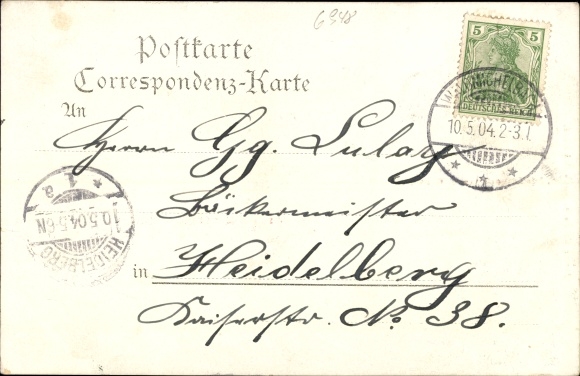 6348
Postkarte
Correspondenz-Karte
5
DEUTSCHES REICH
10.5.04.2-3.N.
An
Herrn Gg. Lulay
Bäckermeister
in Heidelberg
Kaiserstr. No 38.
* 1. a
10.5.04.5-6N
HEIDELBERG